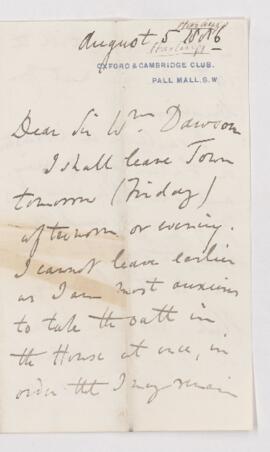 August 5 1886
OXFORD & CAMBRIDGE CLUB.
PALL MALL. S.W
Dear Sir Wm Dawson
I shall leave Town
tomorrow (Friday)
afternoon or evening.
I cannot leave earlier
as I am most anxious
to take the oath in
the House at once, in
order tht I may remain